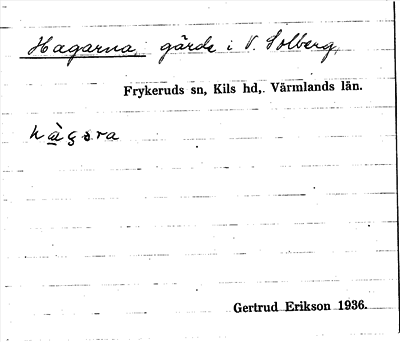 Hagarna, gärde i V. Solberg,
Frykeruds sn, Kils hd, Värmlands län.
Gertrud Erikson 1936.